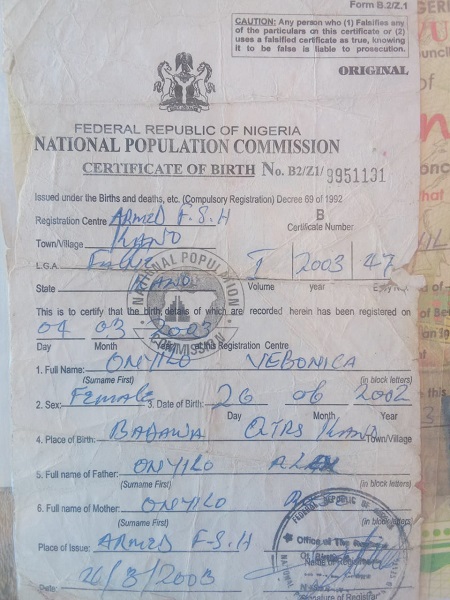 Form B.2/Z.1
CAUTION: Any person who (1) Falsifies any
of the particulars on this certificate or (2)
uses a falsified certificate as true, knowing
it to be false is liable to prosecution.
ORIGINAL
FEDERAL REPUBLIC OF NIGERIA
NATIONAL POPULATION COMMISSION
CERTIFICATE OF BIRTH No. B2/Z1/ 9951131
Issued under the Births and deaths, etc. (Compulsory Registration) Decree 69 of 1992
Registration Centre ARMED F.S.H B
Certificate Number
Town/Village KANO
L.G.A. I 2003 47
State KANO Volume year
NATIONAL POPULATION COMMISSION
This is to certify that the birth details of which are recorded herein has been registered on
04 03 2003
Day Month Year at this Registration Centre
1. Full Name: ONYILO VERONICA
(Surname First) (in block letters)
2. Sex: Female 3. Date of Birth: 26 06 2002
Day Month Year
4. Place of Birth: BADAWA QTRS KANO Town/Village
5. Full name of Father: ONYILO
(Surname First) (in block letters)
6. Full name of Mother: ONYILO
(Surname First) (in block
Place of Issue: ARMED F-S.H
FEDERAL REPUBLIC OF NIGERIA
Office of The
Date: 26/3/2003
Signature of Registrar